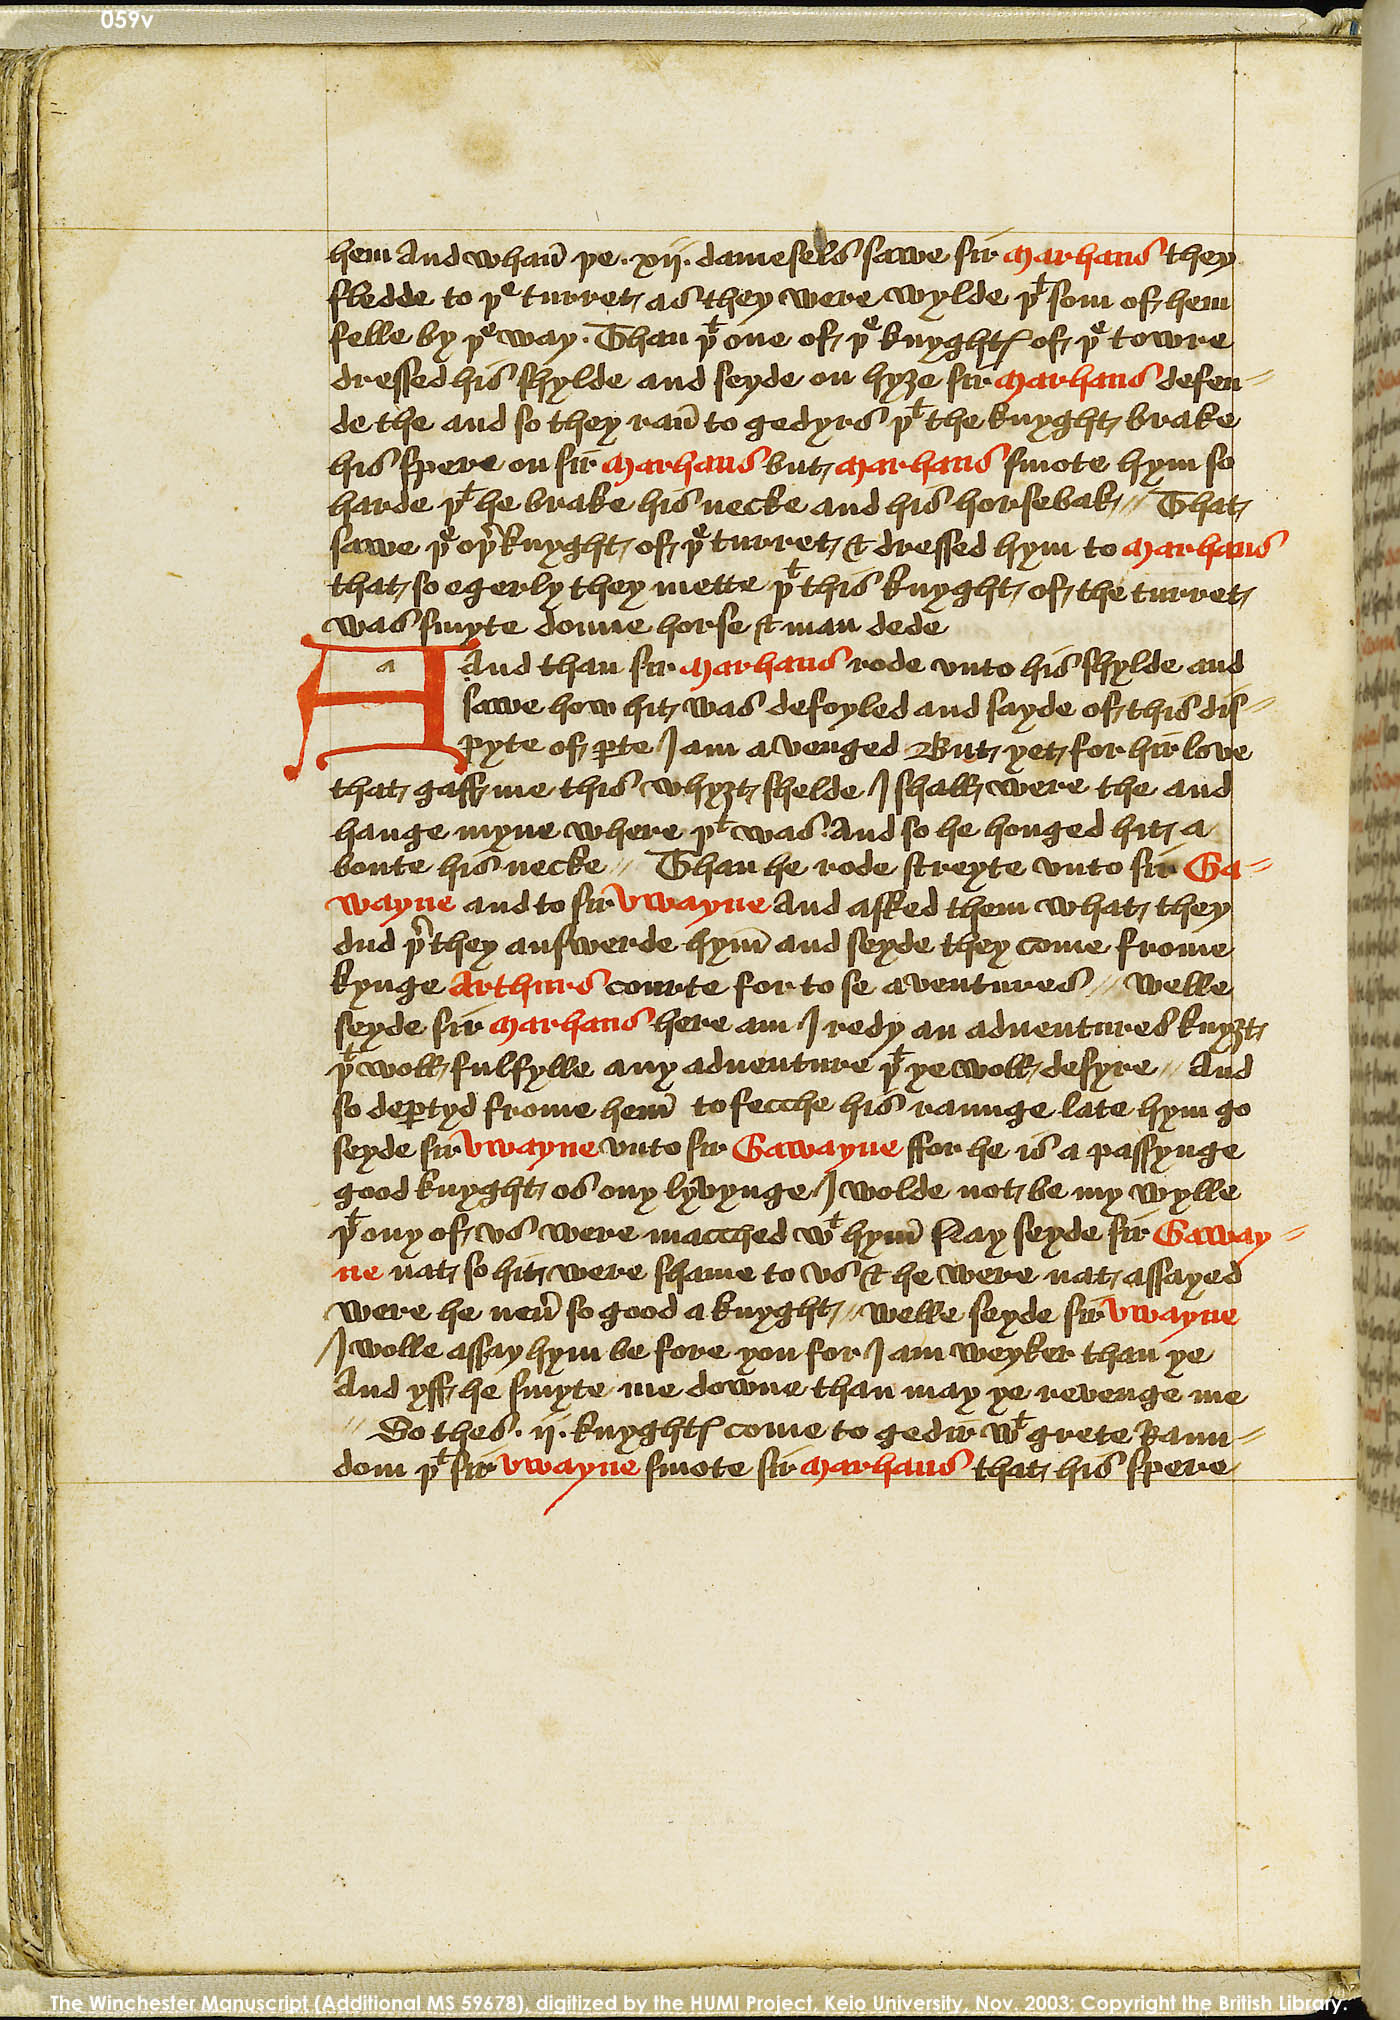 059v
hem And whan̄ þe .xij. damesels sawe sir Marhaus they
fledde to þͤ turret as they were wylde þͭ som of hem
felle by þͤ way . Than þͭ one of þͤ knyghtꝭ of þͤ towre
dressed his shylde and seyde on hyȝe sir Marhaus defen=
de the and so they ran̄ to gedyrs þͭ the knyght brake
his spere on sir Marhaus but Marhaus smote hym so
harde þͭ he brake his necke and his horse bak // That
sawe þͤ oþ̉ knyght of þͤ turret & dressed hym to Marhaus
that so egerly they mette þͭ this knyght of the turret
was smyte doune horse & man dede
a
And than sir Marhaus rode vnto his shylde and
sawe how hit was defoyled and sayde of this dis=
pyte of ꝑte I am a venged But yet for hir love
that gaff me this whyȝt shelde I shall were the and
hange myne where þͭ was . And so he honged hit a
boute his necke // Than he rode streyte vnto sir Ga=
wayne and to sir Vwayne And asked them what they
dud þ̉ they answerde hym̄ and seyde they come frome
kynge Arthurs courte for to se aventures // Welle
seyde sir Marhaus here am I redy an adventures knyȝt
þͭ woll fulfylle any adventure þͭ ye woll desyre // And
so deꝑtyd frome hem̄ to fecche his raunge late hym go
seyde sir Vwayne vnto sir Gawayne ffor he is a passynge
good knyght os ony lyvynge I wolde not be my wylle
þͭ ony of vs were macched wͭ hym̄ Nay seyde sir Gaway=
ne nat so hit were shame to vs & he were nat assayed
were he neủ so good a knyght // Welle seyde sir Vwayne
I wolle assay hym be fore you for I am weyker than ye
And yff he smyte me downe than may ye revenge me
// So thes .ij. knyghtꝭ come to gedir wͭ grete raun=
dom þͭ sir Vwayne smote sir Marhaus that his spere
The Winchester Manuscript (Additional MS 59678), digitized by the HUMI Project, Keio University, Nov. 2003; Copyright the British Library.